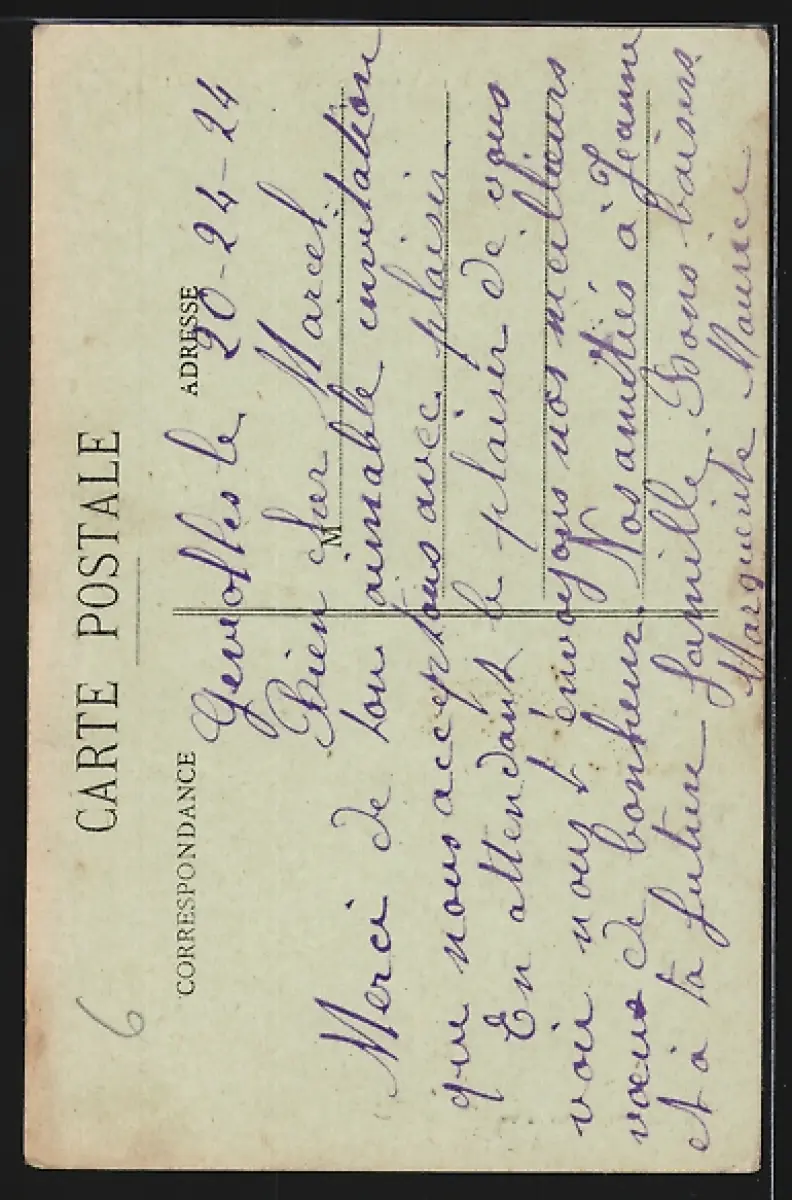 CARTE POSTALE
CORRESPONDANCE
ADRESSE
M
6
Gevrolles le 20-24-24
Bien cher Marcel
Merci de ton aimable invitation
que nous acceptons avec plaisir
En attendant le plaisir de vous
voir nous t'envoyons nos meilleurs
vœux de bonheur. Nos amitiés à Jeanne
et à ta future famille. Bons baisers
Marguerite Maurice